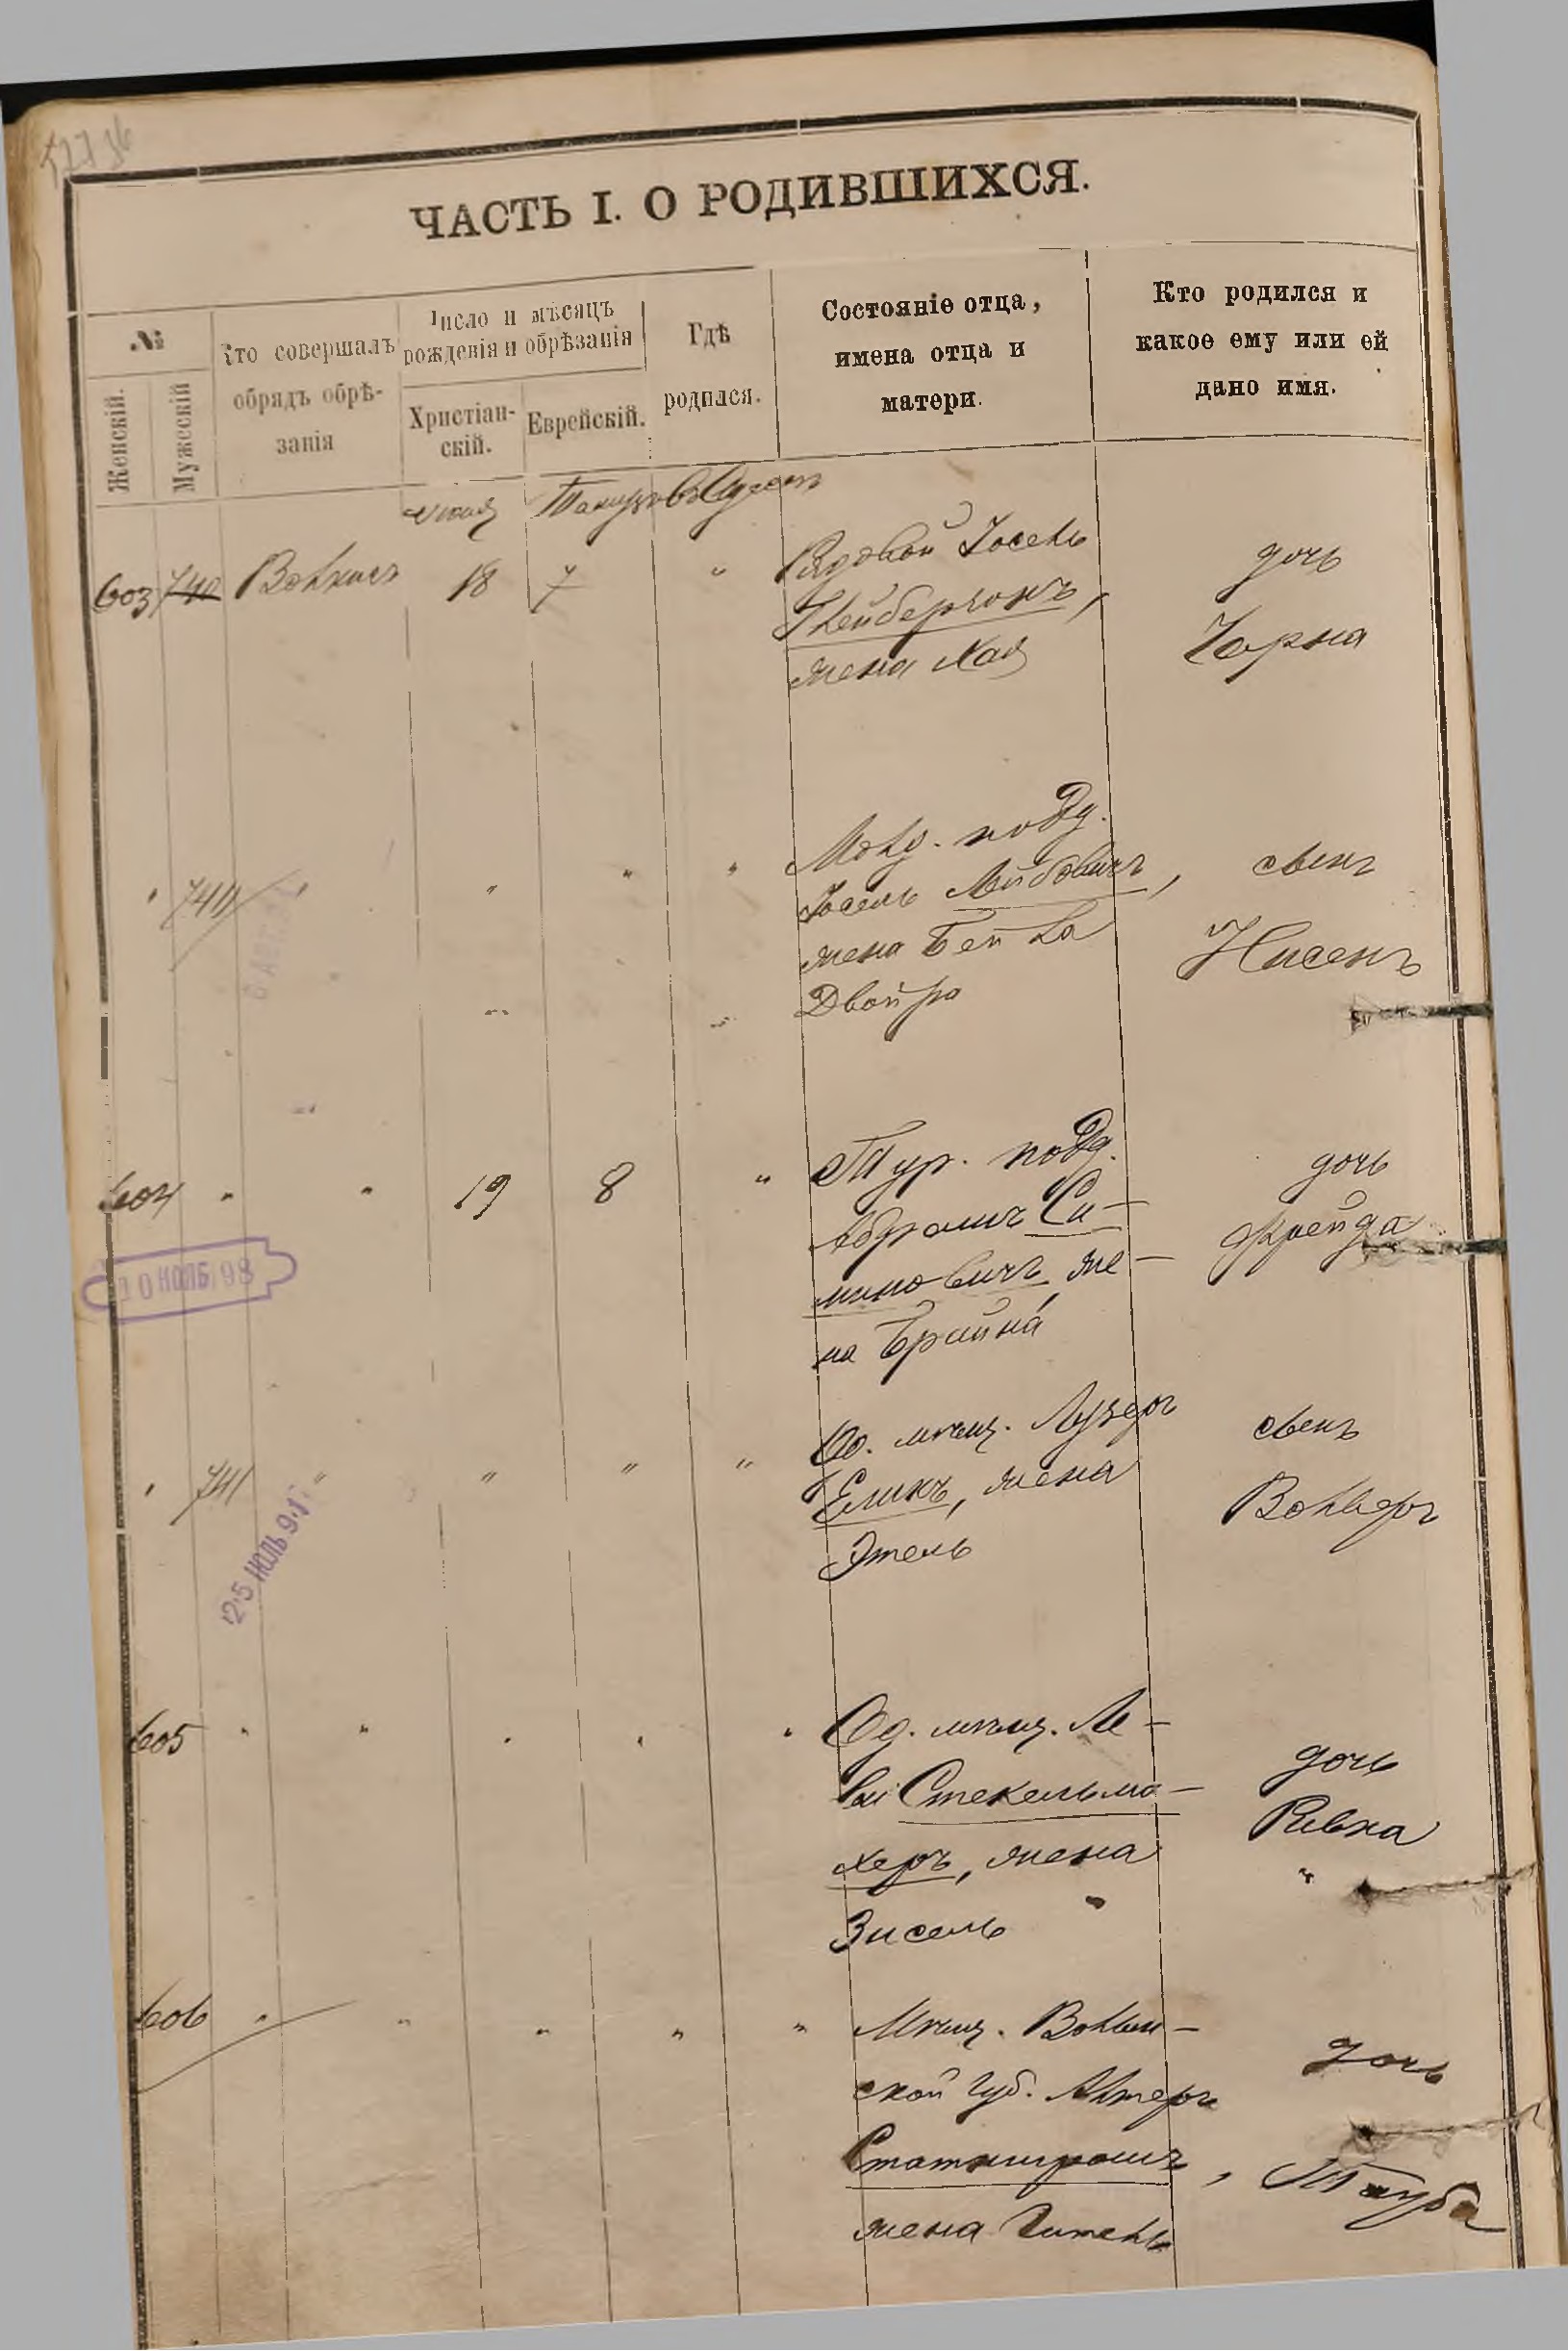 ЧАСТЬ I. О РОДИВШИХСЯ.
№
Женскій.
Мужескій
Кто совершалъ
обрядъ обрѣ-
занія
Число и мѣсяцъ
рожденія и обрѣзанія
Христіан-
скій.
Еврейскій.
Гдѣ
родился.
Состояніе отца,
имена отца и
матери.
Кто родился и
какое ему или ей
дано имя.
Тамузъ въ Одессѣ
603 740 18 7 " Рядовой Іосель
Клейберчонъ,
жена Хая
дочь
Чарна
" 740 " " " "
Іосель Лейбовичъ,
жена Бейла
Двойра
сынъ
Нисенъ
604 " " 19 8 " Тур. подд.
Абрамъ Си-
миновичъ, же-
на Брайна
дочь
Фрейда
10 НОЯБ. 98
" 741 " " " " Од. мѣщ. Лузеръ
Еликъ, жена
Этель
сынъ
Вольфъ
605 " " " " " Од. мѣщ. Ле-
ви Стекельма-
херъ, жена
Зисель
дочь
Ривка
"
606 " " " " " Мѣщ. Волын-
ской губ. Алтеръ
жена Гитель
дочь
Тауба